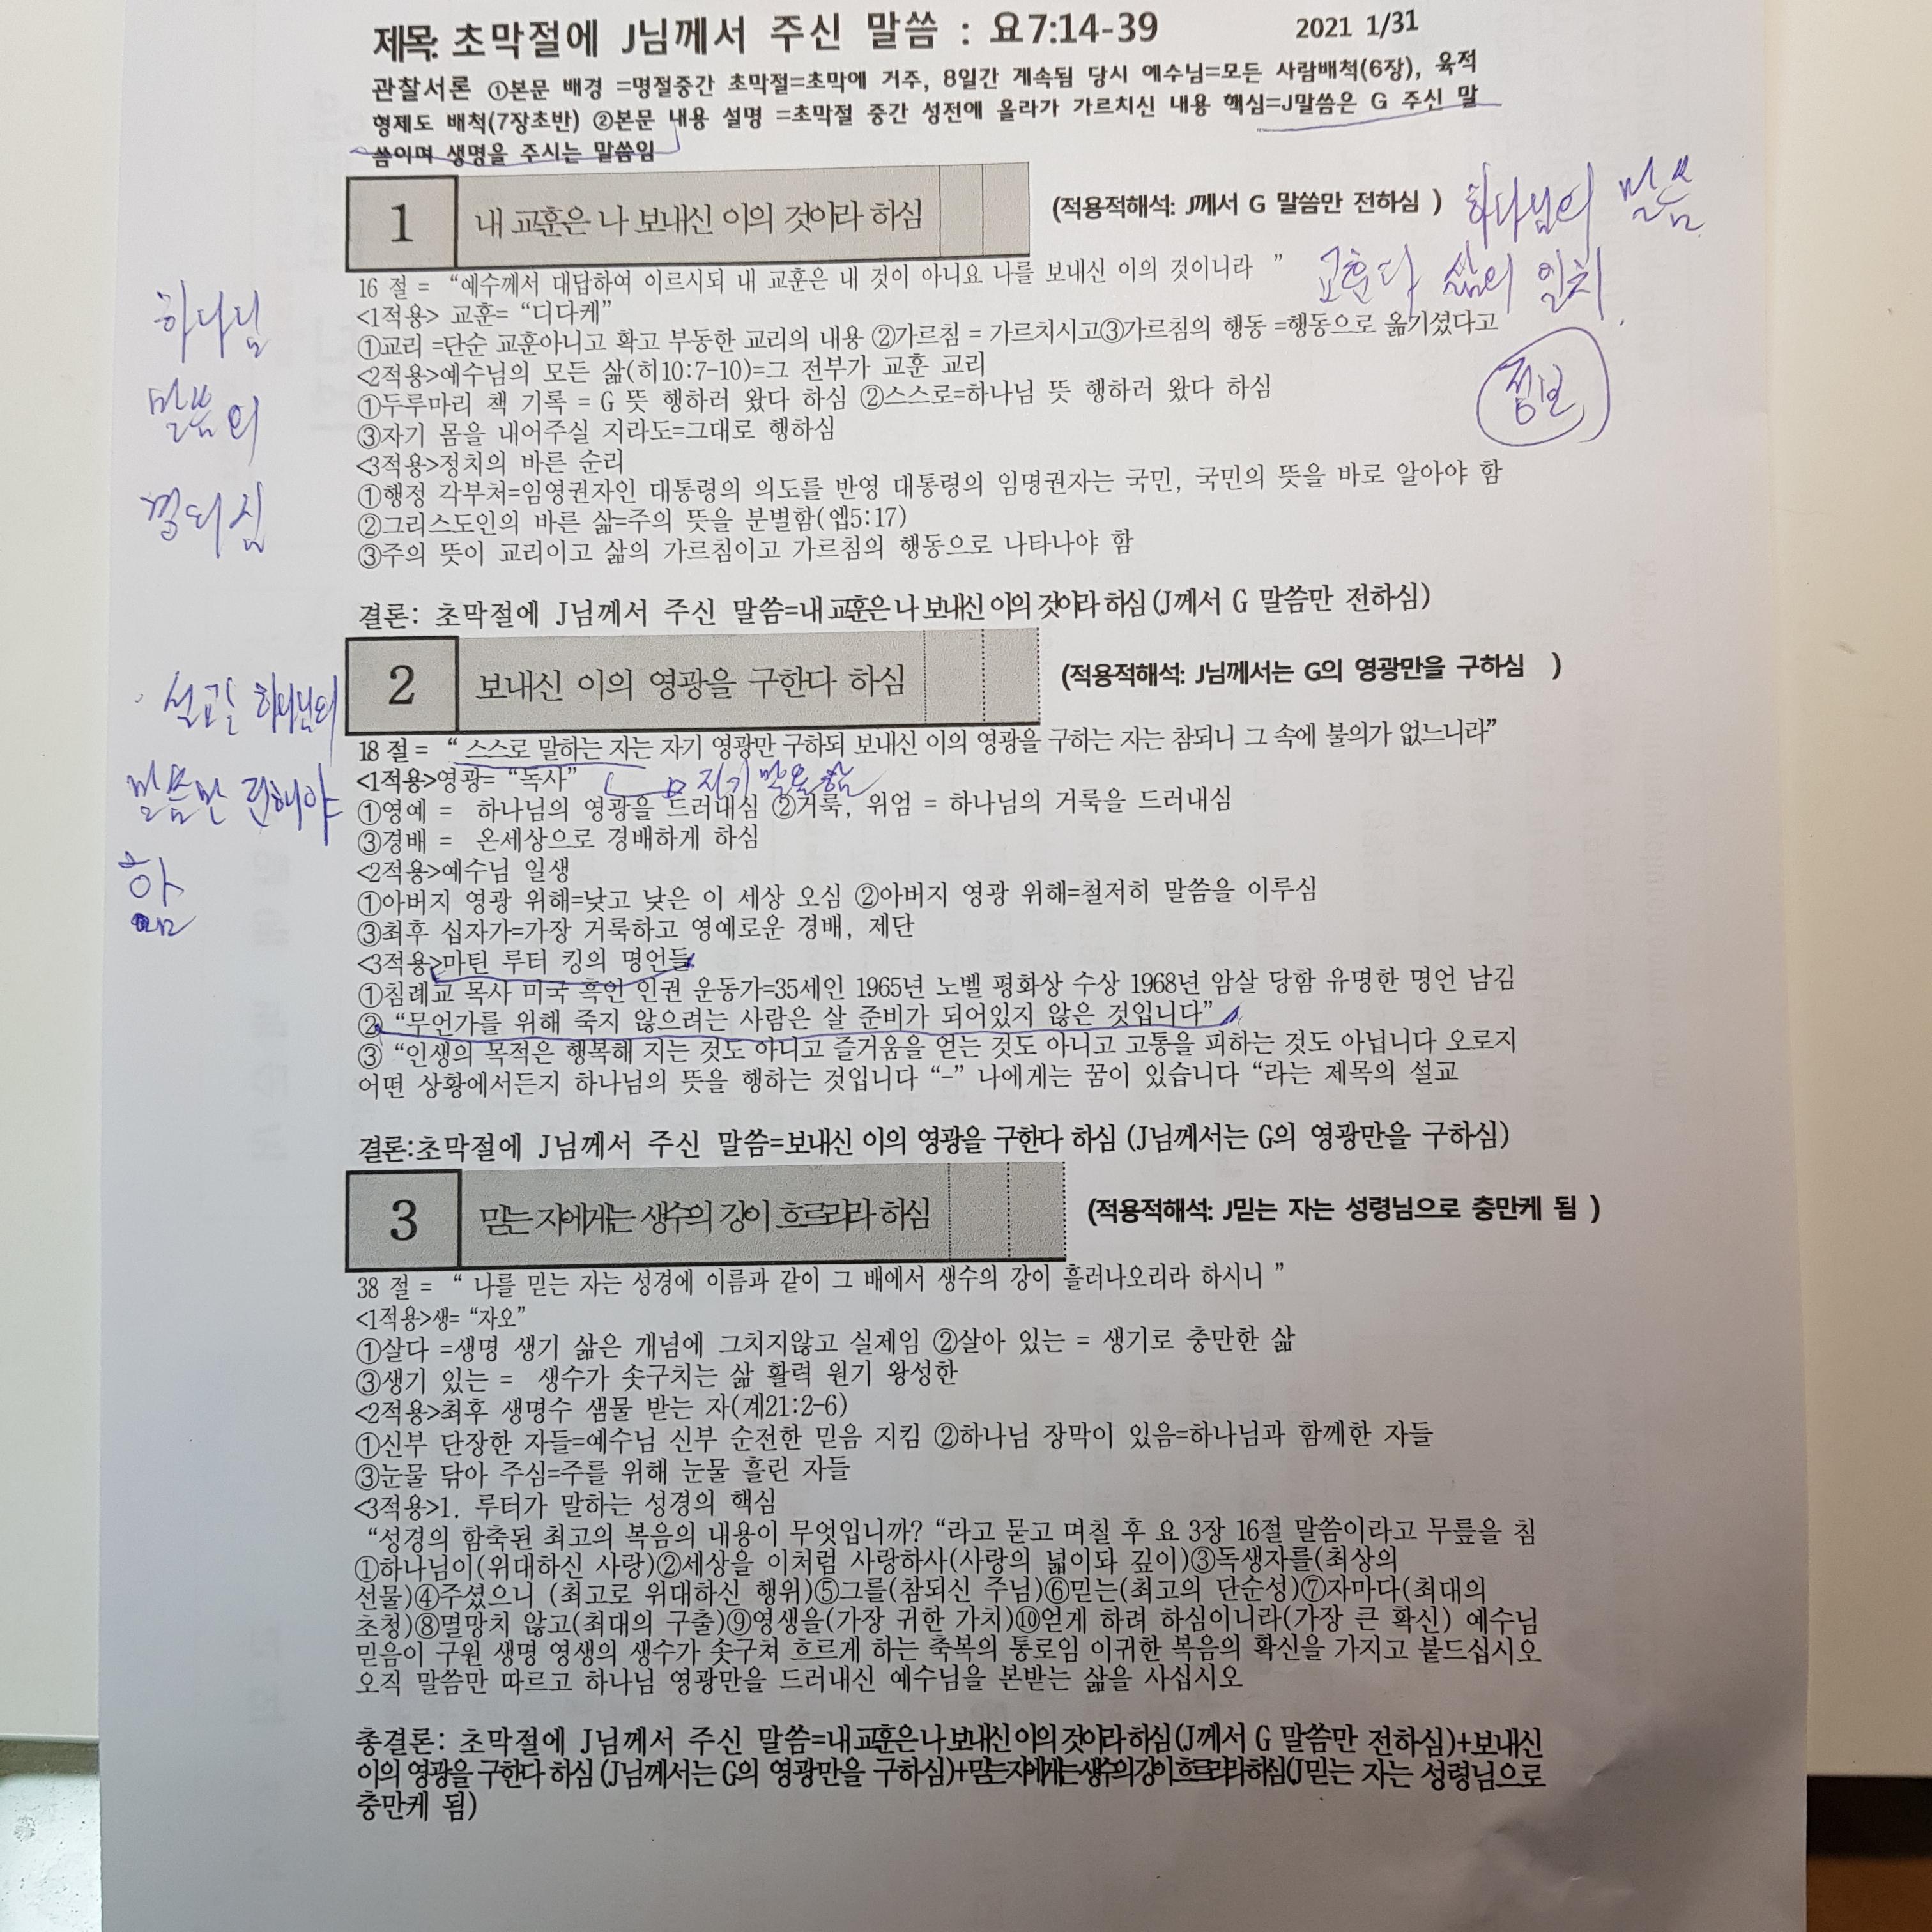 제목: 초막절에 J님께서 주신 말씀 : 요7:14-39 2021 1/31
관찰서론 ①본문 배경 =명절중간 초막절=초막에 거주, 8일간 계속됨 당시 예수님=모든 사람배척(6장), 육적
형제도 배척(7장초반) ②본문 내용 설명 =초막절 중간 성전에 올라가 가르치신 내용 핵심=J말씀은 G 주신 말
씀이며 생명을 주시는 말씀임
1 내 교훈은 나 보내신 이의 것이라 하심 (적용적해석: J께서 G 말씀만 전하심 ) 하나님의 말씀
16 절 = “예수께서 대답하여 이르시되 내 교훈은 내 것이 아니요 나를 보내신 이의 것이니라 ” 삶의 일치
하나님
<1적용> 교훈= “디다케”
①교리 =단순 교훈아니고 확고 부동한 교리의 내용 ②가르침 = 가르치시고③가르침의 행동 =행동으로 옮기셨다고
<2적용>예수님의 모든 삶(히10:7-10)=그 전부가 교훈 교리
정보
말씀의
①두루마리 책 기록 = G 뜻 행하러 왔다 하심 ②스스로=하나님 뜻 행하러 왔다 하심
③자기 몸을 내어주실 지라도=그대로 행하심
<3적용>정치의 바른 순리
①행정 각부처=임영권자인 대통령의 의도를 반영 대통령의 임명권자는 국민, 국민의 뜻을 바로 알아야 함
②그리스도인의 바른 삶=주의 뜻을 분별함(엡5:17)
③주의 뜻이 교리이고 삶의 가르침이고 가르침의 행동으로 나타나야 함
결론: 초막절에 J님께서 주신 말씀=내 교훈은 나 보내신 이의 것이라 하심 (J께서 G 말씀만 전하심)
2 보내신 이의 영광을 구한다 하심 (적용적해석: J님께서는 G의 영광만을 구하심 )
설교는 하나님의
18 절 = “ 스스로 말하는 자는 자기 영광만 구하되 보내신 이의 영광을 구하는 자는 참되니 그 속에 불의가 없느니라”
<1적용>영광= “독사” 자기
말씀만 전해야
①영예 = 하나님의 영광을 드러내심 ②거룩, 위엄 = 하나님의 거룩을 드러내심
③경배 = 온세상으로 경배하게 하심
<2적용>예수님 일생
함
①아버지 영광 위해=낮고 낮은 이 세상 오심 ②아버지 영광 위해=철저히 말씀을 이루심
③최후 십자가=가장 거룩하고 영예로운 경배, 제단
<3적용>마틴 루터 킹의 명언들
①침례교 목사 미국 흑인 인권 운동가=35세인 1965년 노벨 평화상 수상 1968년 암살 당함 유명한 명언 남김
② “무언가를 위해 죽지 않으려는 사람은 살 준비가 되어있지 않은 것입니다”
③ “인생의 목적은 행복해 지는 것도 아니고 즐거움을 얻는 것도 아니고 고통을 피하는 것도 아닙니다 오로지
어떤 상황에서든지 하나님의 뜻을 행하는 것입니다 “-” 나에게는 꿈이 있습니다 “라는 제목의 설교
결론:초막절에 J님께서 주신 말씀=보내신 이의 영광을 구한다 하심 (J님께서는 G의 영광만을 구하심)
3 믿는 자에게는 생수의 강이 흐르리라 하심 (적용적해석: J믿는 자는 성령님으로 충만케 됨 )
38 절 = “ 나를 믿는 자는 성경에 이름과 같이 그 배에서 생수의 강이 흘러나오리라 하시니 ”
<1적용>생= “자오”
①살다 =생명 생기 삶은 개념에 그치지않고 실제임 ②살아 있는 = 생기로 충만한 삶
③생기 있는 = 생수가 솟구치는 삶 활력 원기 왕성한
<2적용>최후 생명수 샘물 받는 자(계21:2-6)
①신부 단장한 자들=예수님 신부 순전한 믿음 지킴 ②하나님 장막이 있음=하나님과 함께한 자들
③눈물 닦아 주심=주를 위해 눈물 흘린 자들
<3적용>1. 루터가 말하는 성경의 핵심
“성경의 함축된 최고의 복음의 내용이 무엇입니까? “라고 묻고 며칠 후 요 3장 16절 말씀이라고 무릎을 침
①하나님이(위대하신 사랑)②세상을 이처럼 사랑하사(사랑의 넓이돠 깊이)③독생자를(최상의
선물)④주셨으니 (최고로 위대하신 행위)⑤그를(참되신 주님)⑥믿는(최고의 단순성)⑦자마다(최대의
초청)⑧멸망치 않고(최대의 구출)⑨영생을(가장 귀한 가치)⑩얻게 하려 하심이니라(가장 큰 확신) 예수님
믿음이 구원 생명 영생의 생수가 솟구쳐 흐르게 하는 축복의 통로임 이귀한 복음의 확신을 가지고 붙드십시오
오직 말씀만 따르고 하나님 영광만을 드러내신 예수님을 본받는 삶을 사십시오
총결론: 초막절에 J님께서 주신 말씀=내 교훈은 나 보내신 이의 것이라 하심 (J께서 G 말씀만 전하심)+보내신
이의 영광을 구한다 하심 (J님께서는 G의 영광만을 구하심)+믿는 자에게는 생수의 강이 흐르리라 하심(J믿는 자는 성령님으로
충만케 됨)